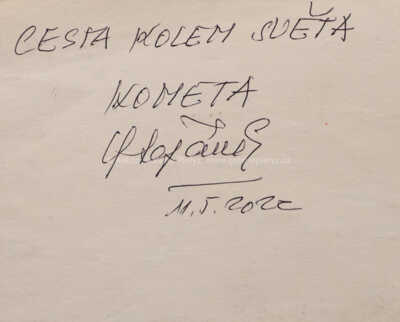 CESTA KOLEM SVĚTA
KOMETA
11.5.2022